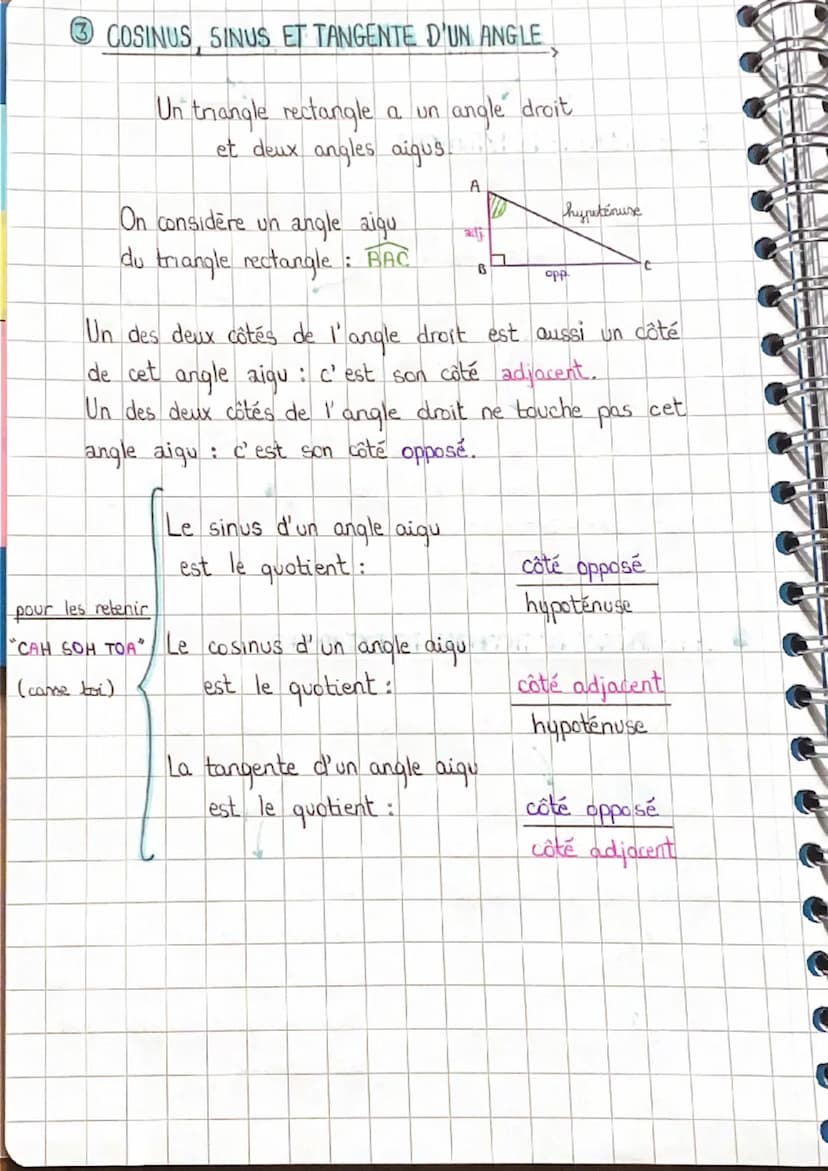 ③ COSINUS, SINUS ET TANGENTE D'UN ANGLE
Un triangle rectangle a un angle droit
et deux angles aigus.
On considère un angle aigu
du triangle rectangle : BAC
A
hypoténuse
adj
B
opp.
C
Un des deux côtés de l'angle droit est aussi un côté
de cet angle aigu : c'est son côté adjacent.
Un des deux côtés de l'angle droit ne touche pas cet
angle aigu : c'est son côté opposé.
Le sinus d'un angle aigu
est le quotient :
côté opposé
hypoténuse
pour les retenir
"CAH SOH TOA"
(casse toi)
Le cosinus d'un angle aigu
est le quotient :
côté adjacent
hypoténuse
La tangente d'un angle aigu
est le quotient :
côté opposé
côté adjacent